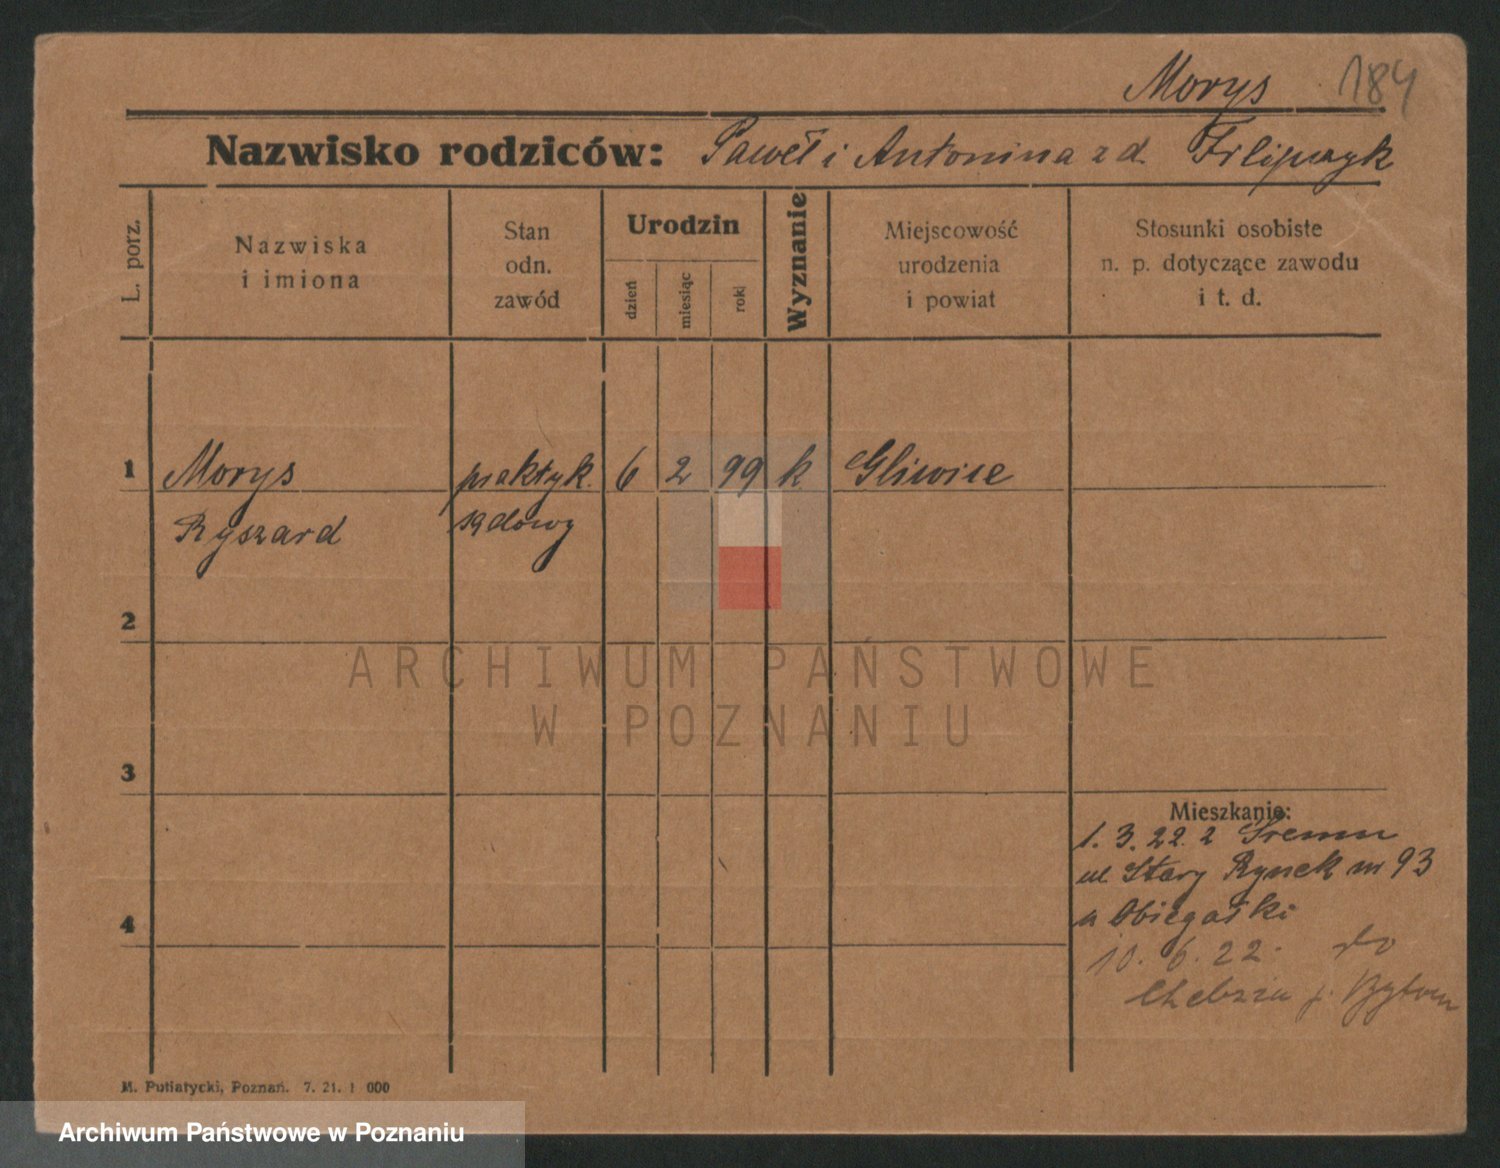 Morys 184
Nazwisko rodziców: Paweł i Antonina z d. Filipczyk
L. porz.
Nazwiska
i imiona
Stan
odn.
zawód
Urodzin
dzień
miesiąc
rok
Wyznanie
Miejscowość
urodzenia
i powiat
Stosunki osobiste
n. p. dotyczące zawodu
i t. d.
1 Morys praktyk. 6 2 99 k Gliwice
Ryszard sądowy
2
ARCHIWUM PAŃSTWOWE
W POZNANIU
3
Mieszkanie:
1. 3. 22. z Śremu
ul Stary Rynek nr 93
4
u Obiegałki
10. 6. 22. do
Chebzia p. Bytom
M. Putiatycki, Poznań. 7. 21. 1 000
Archiwum Państwowe w Poznaniu